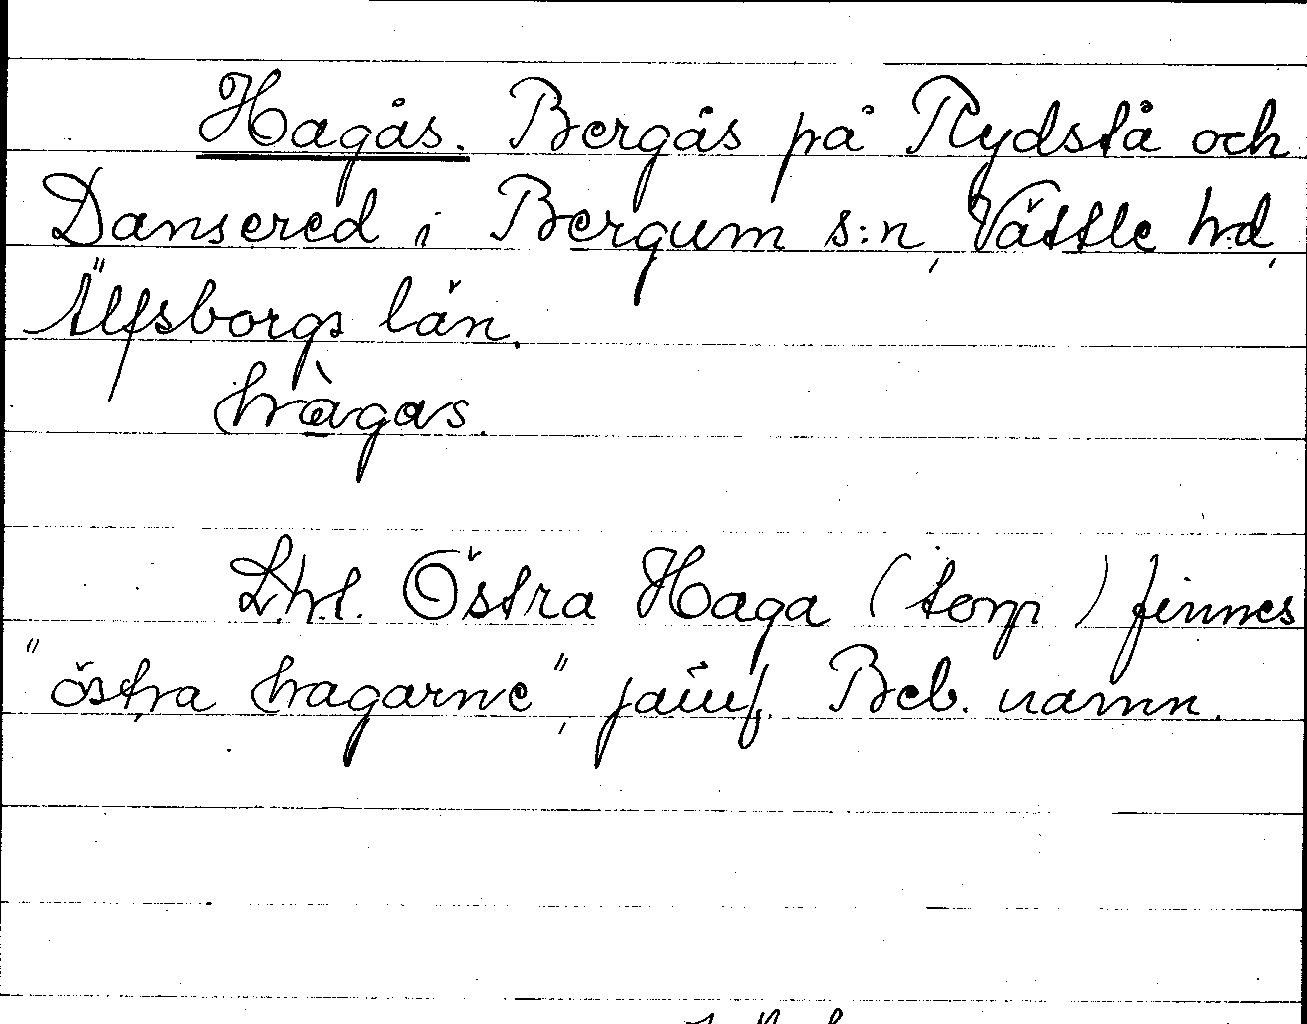 Hagås. Bergås på Rydstå och
Dansered i Bergum s:n, Vättle hd,
Älfsborgs län.
hàgas.
L.h.l. Östra Haga (torp) finnes
"östra hagarne", jämf. Beb. namn.